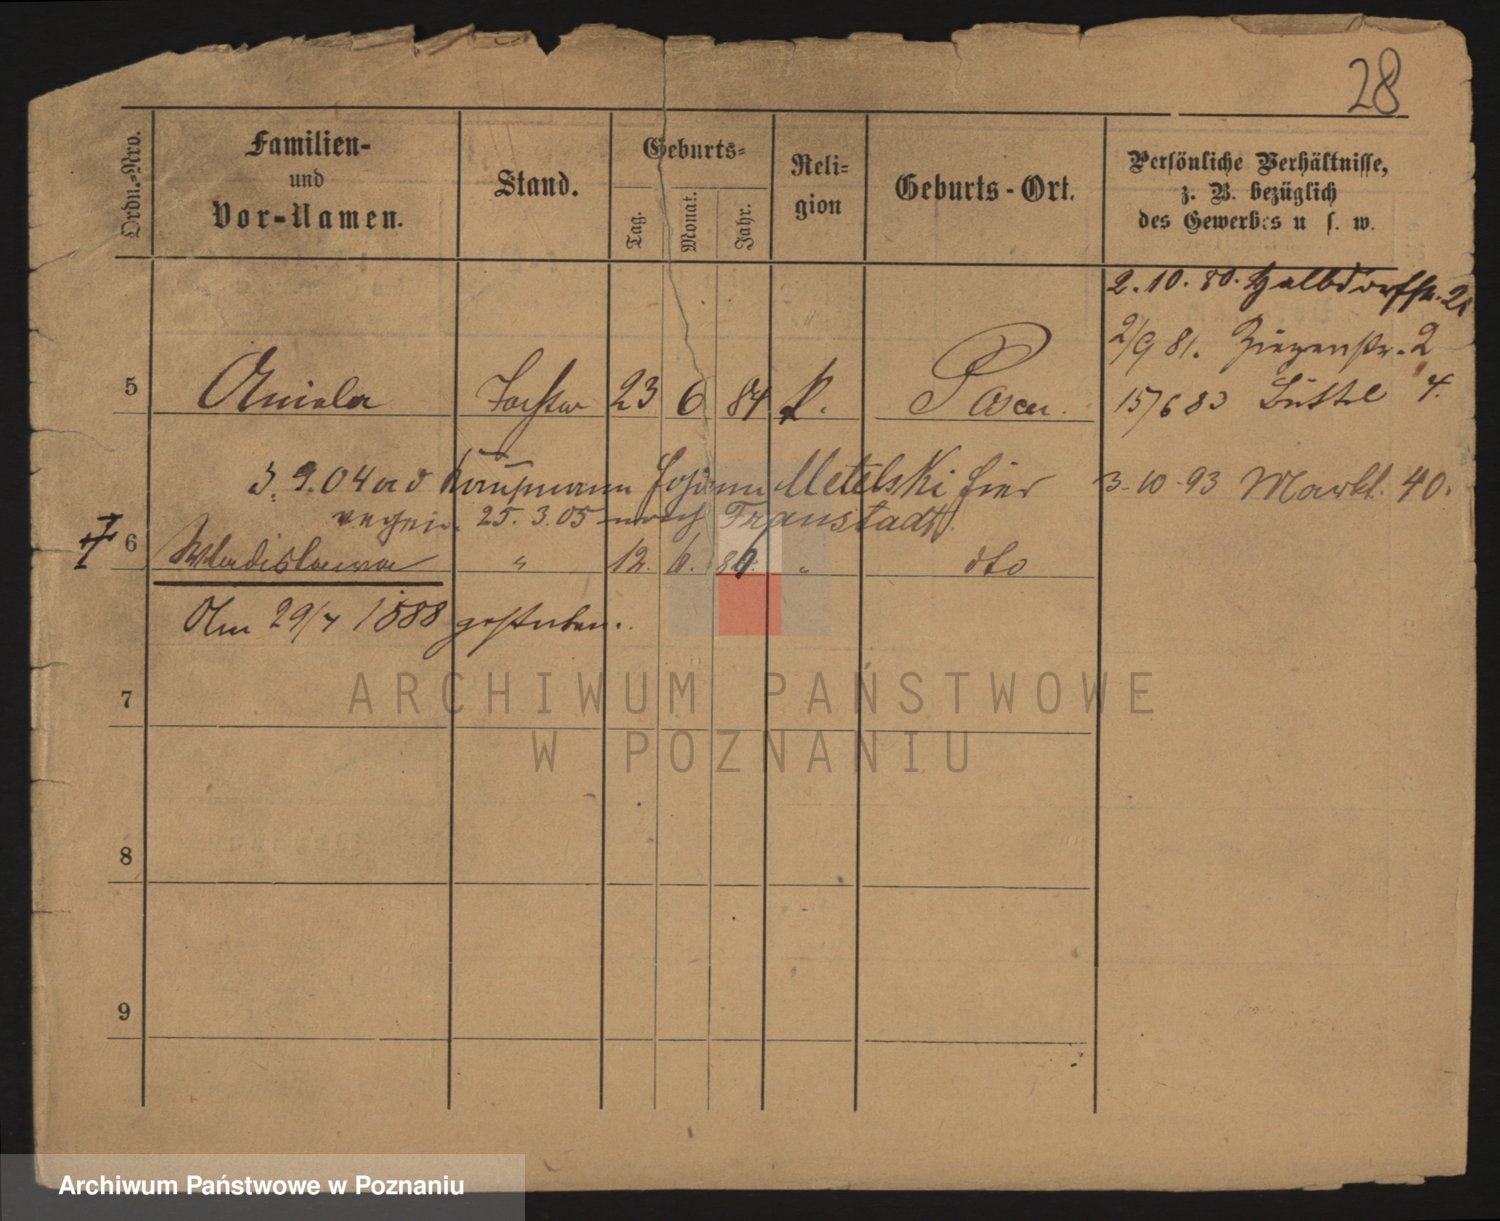 28
Ordn.-Nro.
Familien-
und
Vor-Namen.
Stand.
Geburts-
Tag.
Monat.
Jahr.
Reli-
gion
Geburts-Ort.
Persönliche Verhältnisse,
z. B. bezüglich
des Gewerbes u s. w.
2. 10. 80. Halbdorfstr.
2/9 81. Ziegenstr. 2
5 Aniela Tochter 23 6 84 k. Posen.
15/6 83 Büttel " 4.
3. 9. 04 Kaufmann Johann Metelski hier
3-10-93 Markt. 40.
25. 3. 05 nach Fraustadt.
6 Wladislawa " 12. 6. " dto
Am 29/7 1888 gestorben.
7
8
9
ARCHIWUM PAŃSTWOWE
W POZNANIU
Archiwum Państwowe w Poznaniu